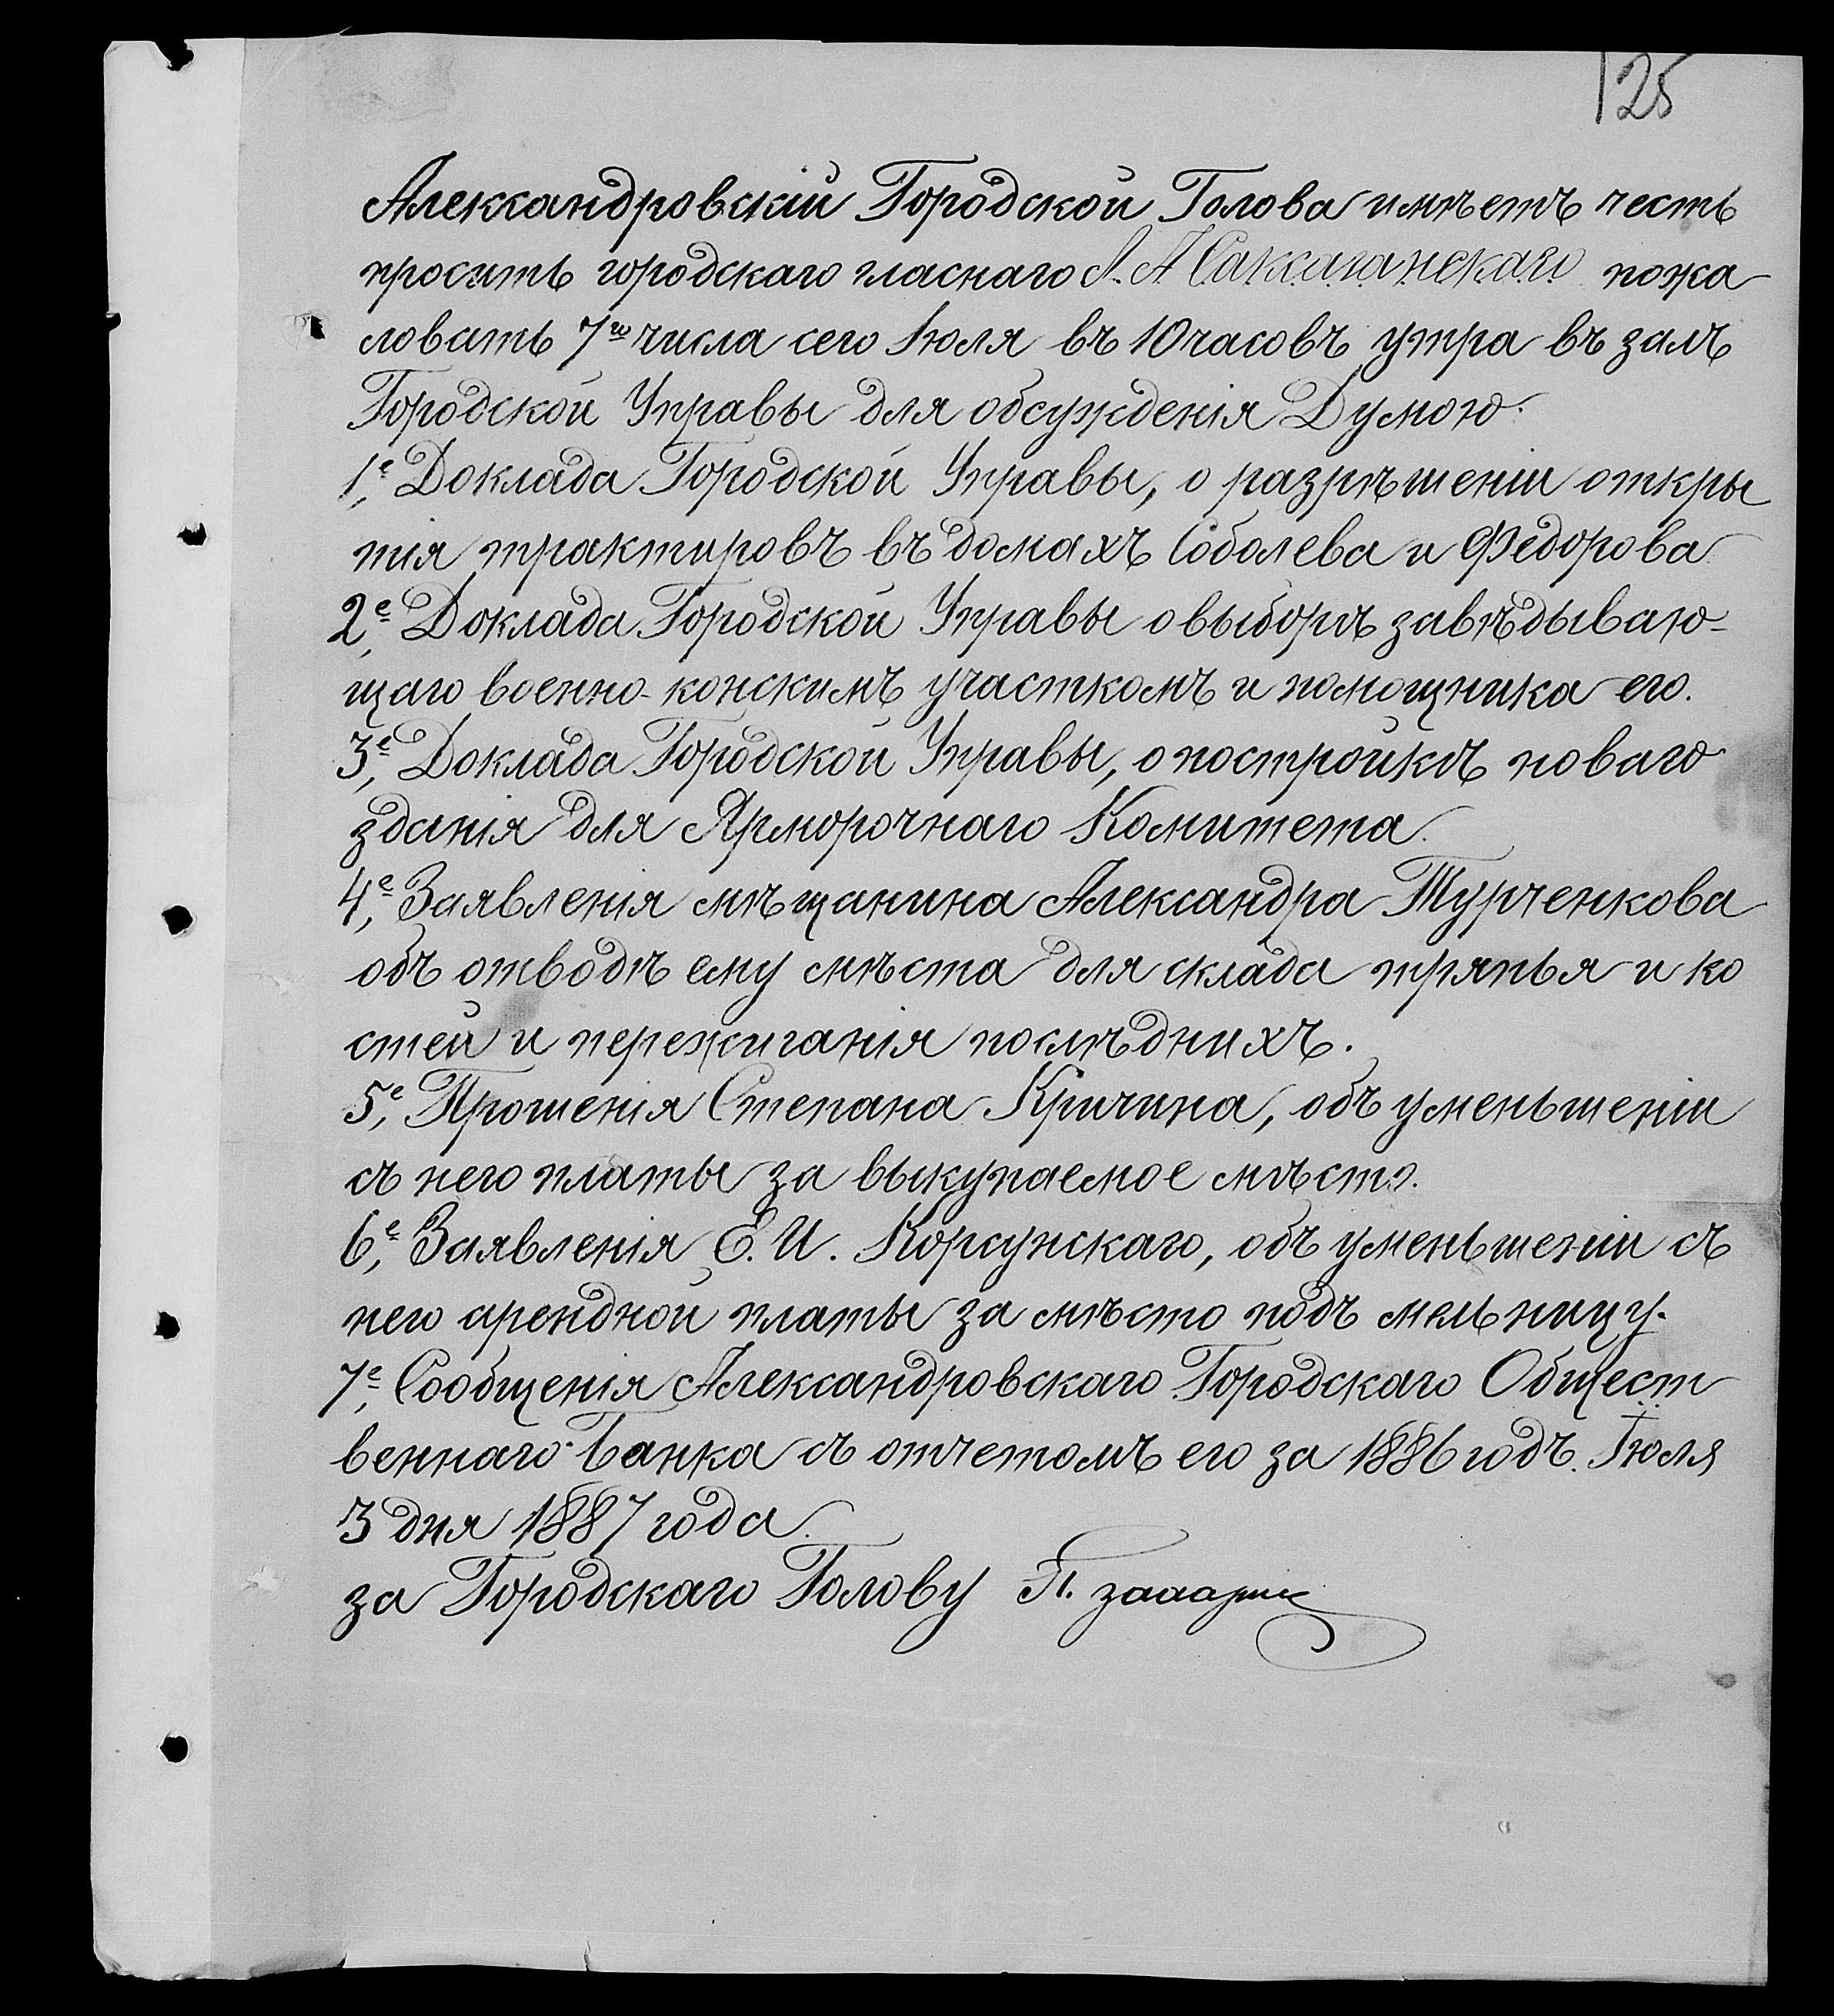 125
Александровскій Городской Голова имѣетъ честь
просить городскаго гласнаго Л. А Саксаганскаго пожа
ловать 7го числа сего Іюля въ 10 часовъ утра въ залѣ
Городской Управы для обсужденія Думою.
1е, Доклада Городской Управы, о разрѣшеніи откры
тія трактировъ въ домахъ Соболева и Федорова
2е, Доклада Городской Управы о выборѣ завѣдываю-
щаго военно-конскимъ участкомъ и помощника его.
3е, Доклада Городской Управы, о постройкѣ новаго
зданія для Ярморочнаго Комитета.
4е, Заявленія мѣщанина Александра Турченкова
объ отводѣ ему мѣста для склада тряпья и ко
стей и пережиганія послѣднихъ.
5е, Прошенія Степана Кричина, объ уменьшеніи
съ него платы за выкупаемое мѣсто.
6е, Заявленія Е. И. Корсунскаго, объ уменьшеніи съ
него арендной платы за мѣсто подъ мельницу.
7е, Сообщенія Александровскаго Городскаго Общест
веннаго Банка съ отчетомъ его за 1886 годъ. Іюля
3 дня 1887 года.
за Городскаго Голову П.